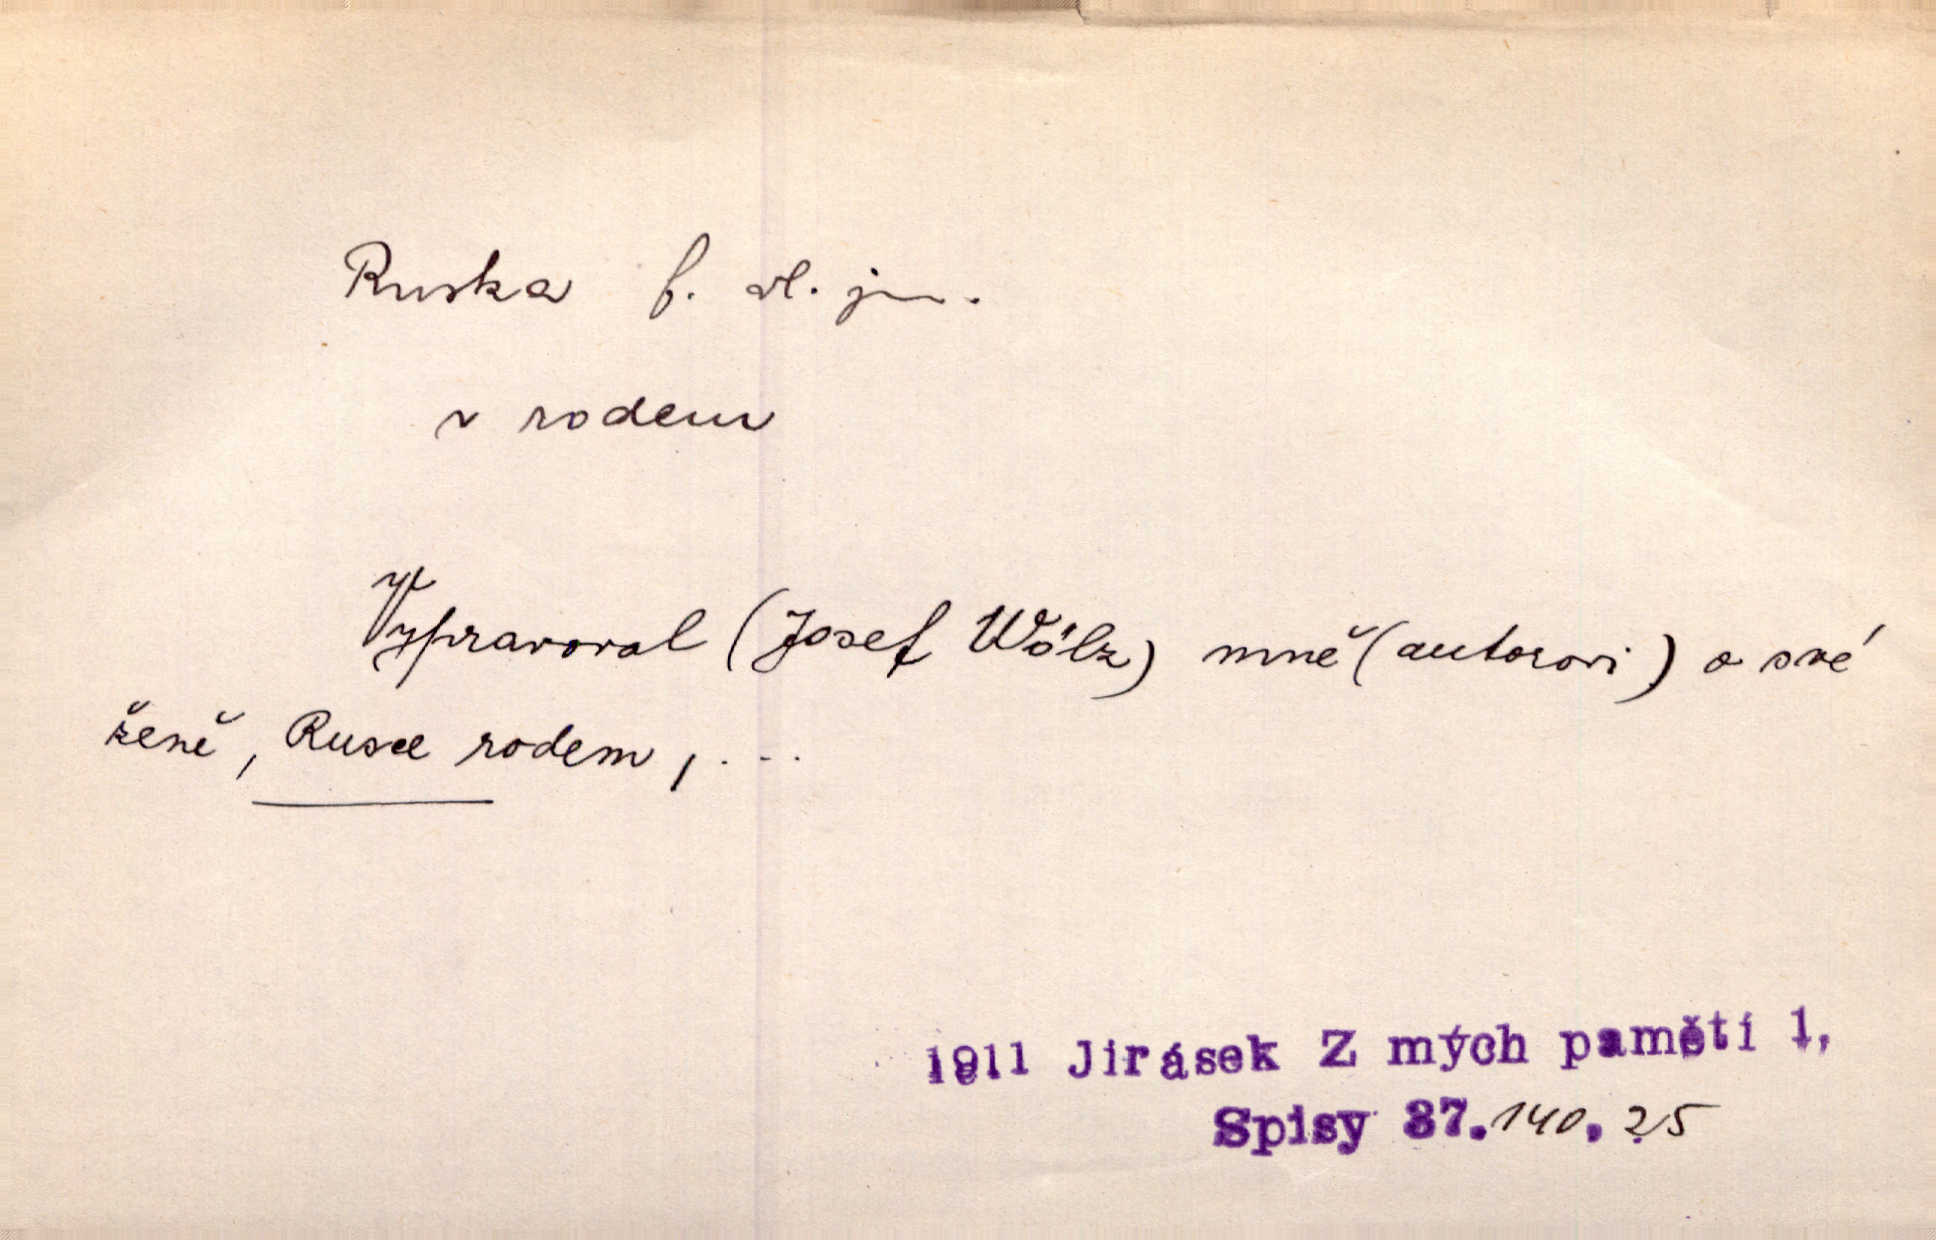 Ruska f. vl. jm.
v rodem
Vypravoval (Josef Wölz) mně (autorovi) o své
ženě, Rusce rodem, ...
1911 Jirásek Z mých pamětí 1,
Spisy 37. 140, 25